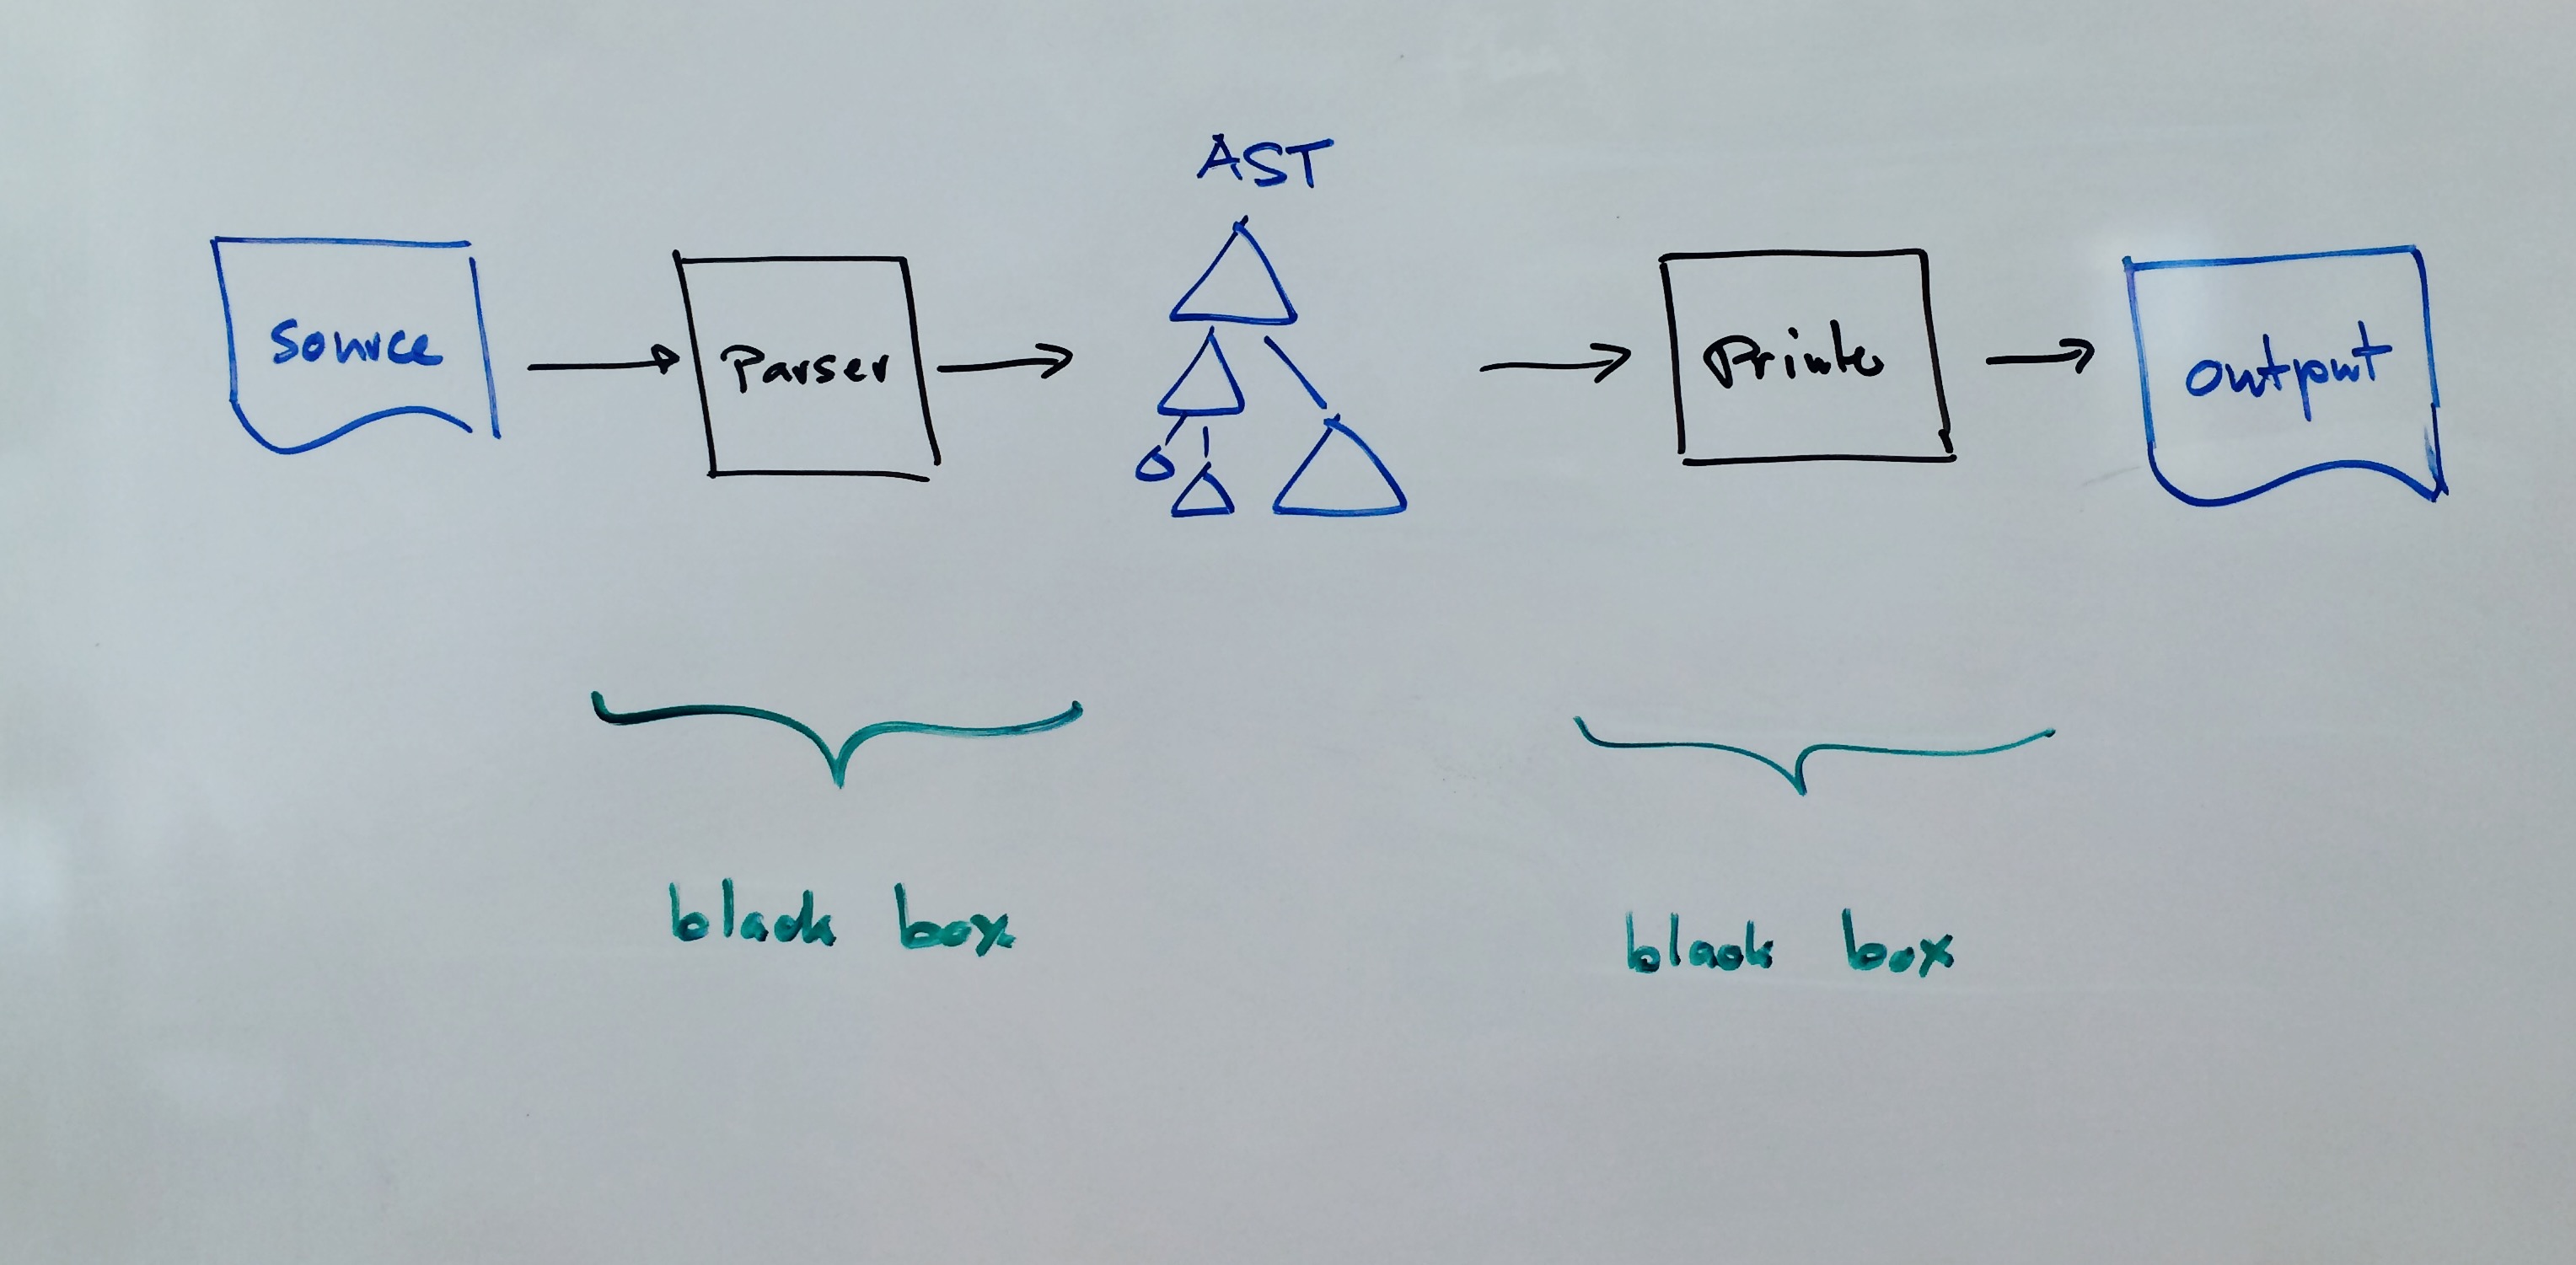 AST
source
Parser
Printer
output
black box
black box